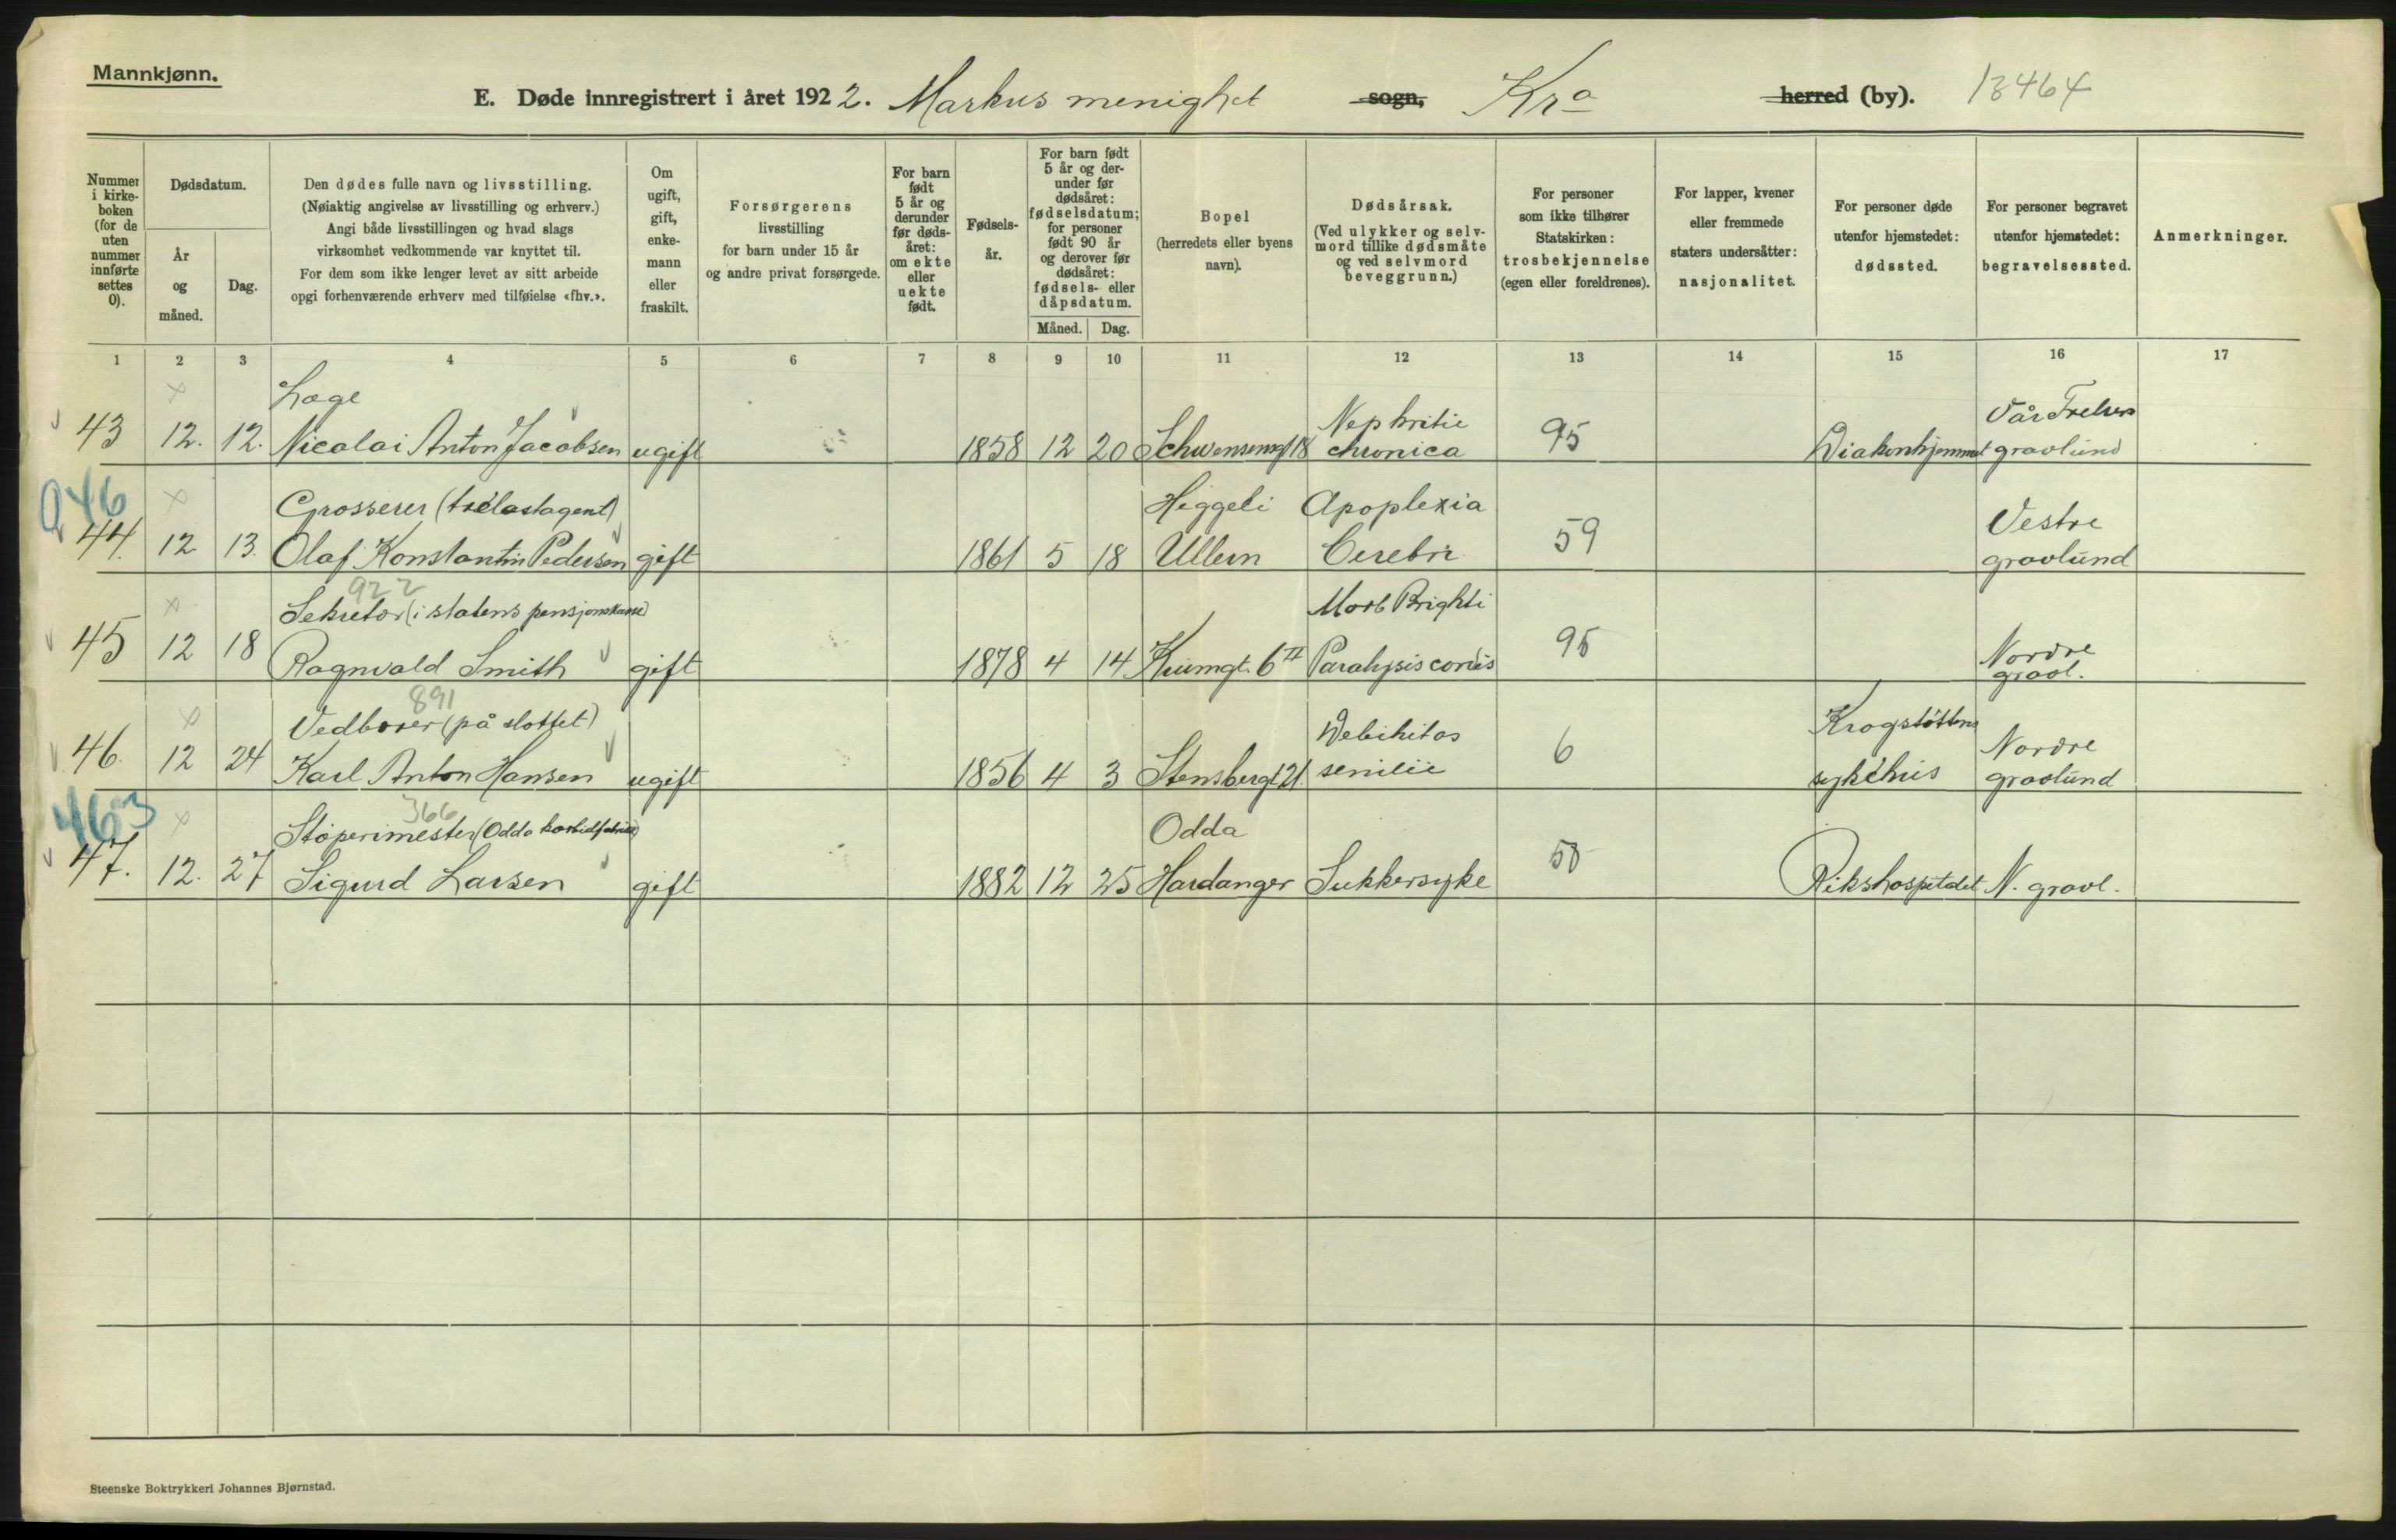 Mannkjønn.
E. Døde innregistrert i året 1922. Markus menighet sogn, Kra herred (by). 13464
Nummer i kirkeboken (for de uten nummer innførte settes 0).
Dødsdatum.
År og måned.
Dag.
Den dødes fulle navn og livsstilling.
(Nøiaktig angivelse av livsstilling og erhverv.)
Angi både livsstillingen og hvad slags
virksomhet vedkommende var knyttet til.
For dem som ikke lenger levet av sitt arbeide
opgi forhenværende erhverv med tilføielse «fhv.».
Om ugift, gift, enkemann eller fraskilt.
Forsørgerens
livsstilling
for barn under 15 år
og andre privat forsørgede.
For barn født 5 år og derunder før dødsåret: om ekte eller uekte født.
Fødselsår.
For barn født 5 år og derunder før dødsåret: fødselsdatum; for personer født 90 år og derover før dødsåret: fødsels- eller dåpsdatum.
Måned.
Dag.
Bopel
(herredets eller byens
navn).
Dødsårsak.
(Ved ulykker og selvmord tillike dødsmåte og ved selvmord beveggrunn.)
For personer
som ikke tilhører
Statskirken:
trosbekjennelse
(egen eller foreldrenes).
For lapper, kvener
eller fremmede
staters undersåtter:
nasjonalitet.
For personer døde
utenfor hjemstedet:
dødssted.
For personer begravet
utenfor hjemstedet:
begravelsessted.
Anmerkninger.
1 2 3 4 5 6 7 8 9 10 11 12 13 14 15 16 17
Læge Nephritis Vår Frelsers
43 12. 12. Nicolai Anton Jacobsen ugift 1858 12 20 Schwensensgt 18 chronica 95 Diakonhjemmet gravlund
246
Grosserer (trelastagent) Heggeli Apoplexia Vestre
44. 12 13. Olaf Konstantin Pedersen gift 1861 5 18 Ullern Cerebri 59 gravlund
922
Sekretær (i statens pensjonskasse) Morb Brighti Nordre
45 12 18 Ragnvald Smith gift 1878 4 14 6 II Paralysis cordis 95 gravl.
891
Vedbærer (på slottet) Debilitas Krogstøttens Nordre
46. 12 24 Karl Anton Hansen ugift 1856 4 3 Stensbergt 21. senilis 6 sykehus gravlund
463
366
Støperimester (Odda karbidfabrik) Odda
47. 12. 27 Sigurd Larsen gift 1882 12 25 Hardanger Sukkersyke 58 Rikshospitalet N. gravl.
Steenske Boktrykkeri Johannes Bjørnstad.